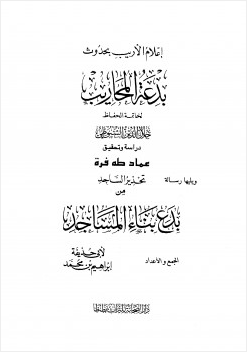 إعلام الأريب بحدوث
بدعة المحاريب
لخاتمة الحفاظ
جلال الدين السيوطي
دراسة وتحقيق
عماد طه فرة
ويليها رسالة
تحذير الساجد
من
بدع بناء المساجد
الجمع والاعداد
لأبي حذيفة
إبراهيم بن محمد
دار الصحابة للتراث بطنطا